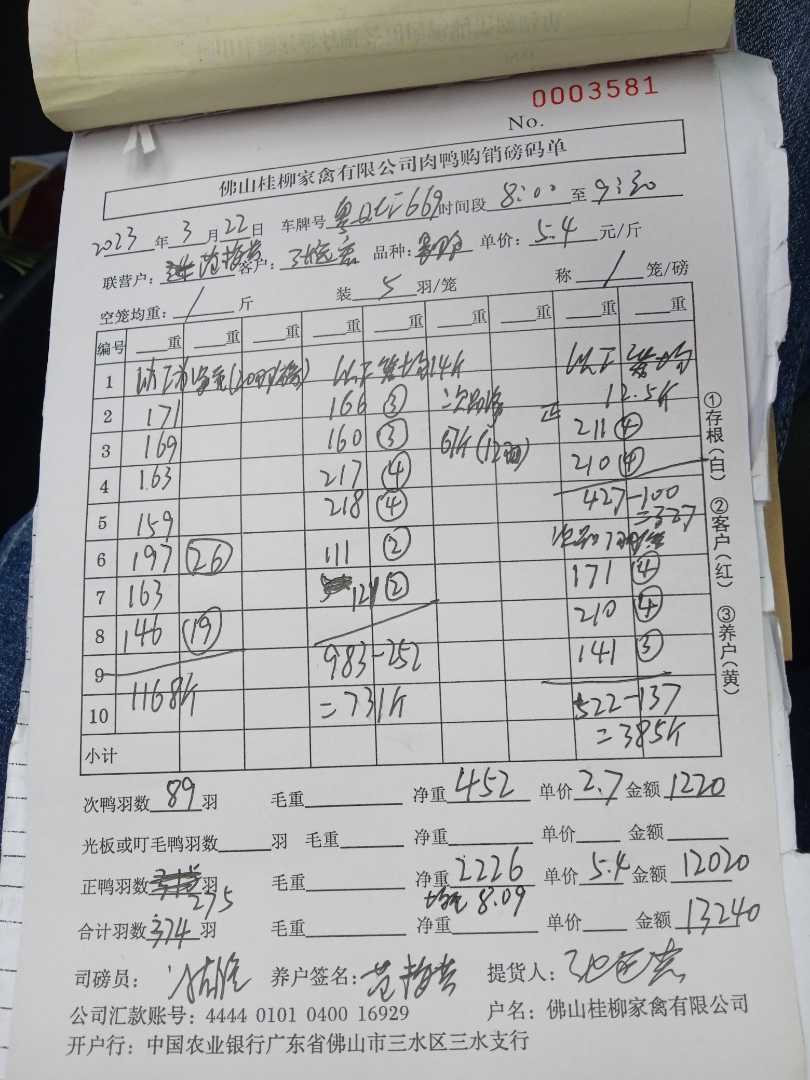 0003581
No.
佛山桂柳家禽有限公司肉鸭购销磅码单
2023年3月22日 车牌号 粤 669 时间段 8:00 至 9:30
联营户: 客户: 品种: 单价: 5.4 元/斤
空笼均重: / 斤 装 5 羽/笼 称 / 笼/磅
编号 重 重 重 重 重 重 重 重 重
1 14斤
2 171 166 ③ 12.5斤
3 169 160 ③ 67斤 211 ④
4 163 217 ④ 210 ④
5 159 218 ④ 427-100
=327
6 197 ㉖ 111 ②
7 163 121 ② 171 ④
8 146 ⑲ 210 ④
9 983-252 141 ③
10 1168斤 =731斤 522-137
小计 =385斤
①存根(白) ②客户(红) ③养户(黄)
次鸭羽数 89 羽 毛重 净重 452 单价 2.7 金额 1220
光板或叮毛鸭羽数 羽 毛重 净重 单价 金额
正鸭羽数 275 羽 毛重 净重 2226 单价 5.4 金额 12020
8.09
合计羽数 374 羽 毛重 净重 单价 金额 13240
司磅员: 养户签名: 提货人:
公司汇款账号: 4444 0101 0400 16929 户名: 佛山桂柳家禽有限公司
开户行: 中国农业银行广东省佛山市三水区三水支行